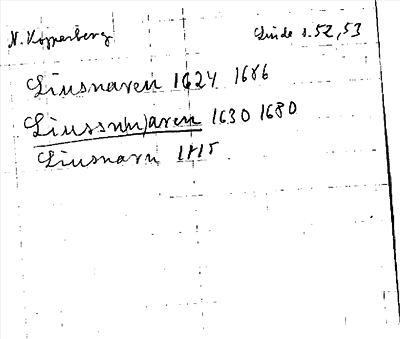 N. Kopparberg Linde s. 52, 53
Liusnaren 1624 1686
Liussnn)aren 1630 1680
Liusnarn 1715